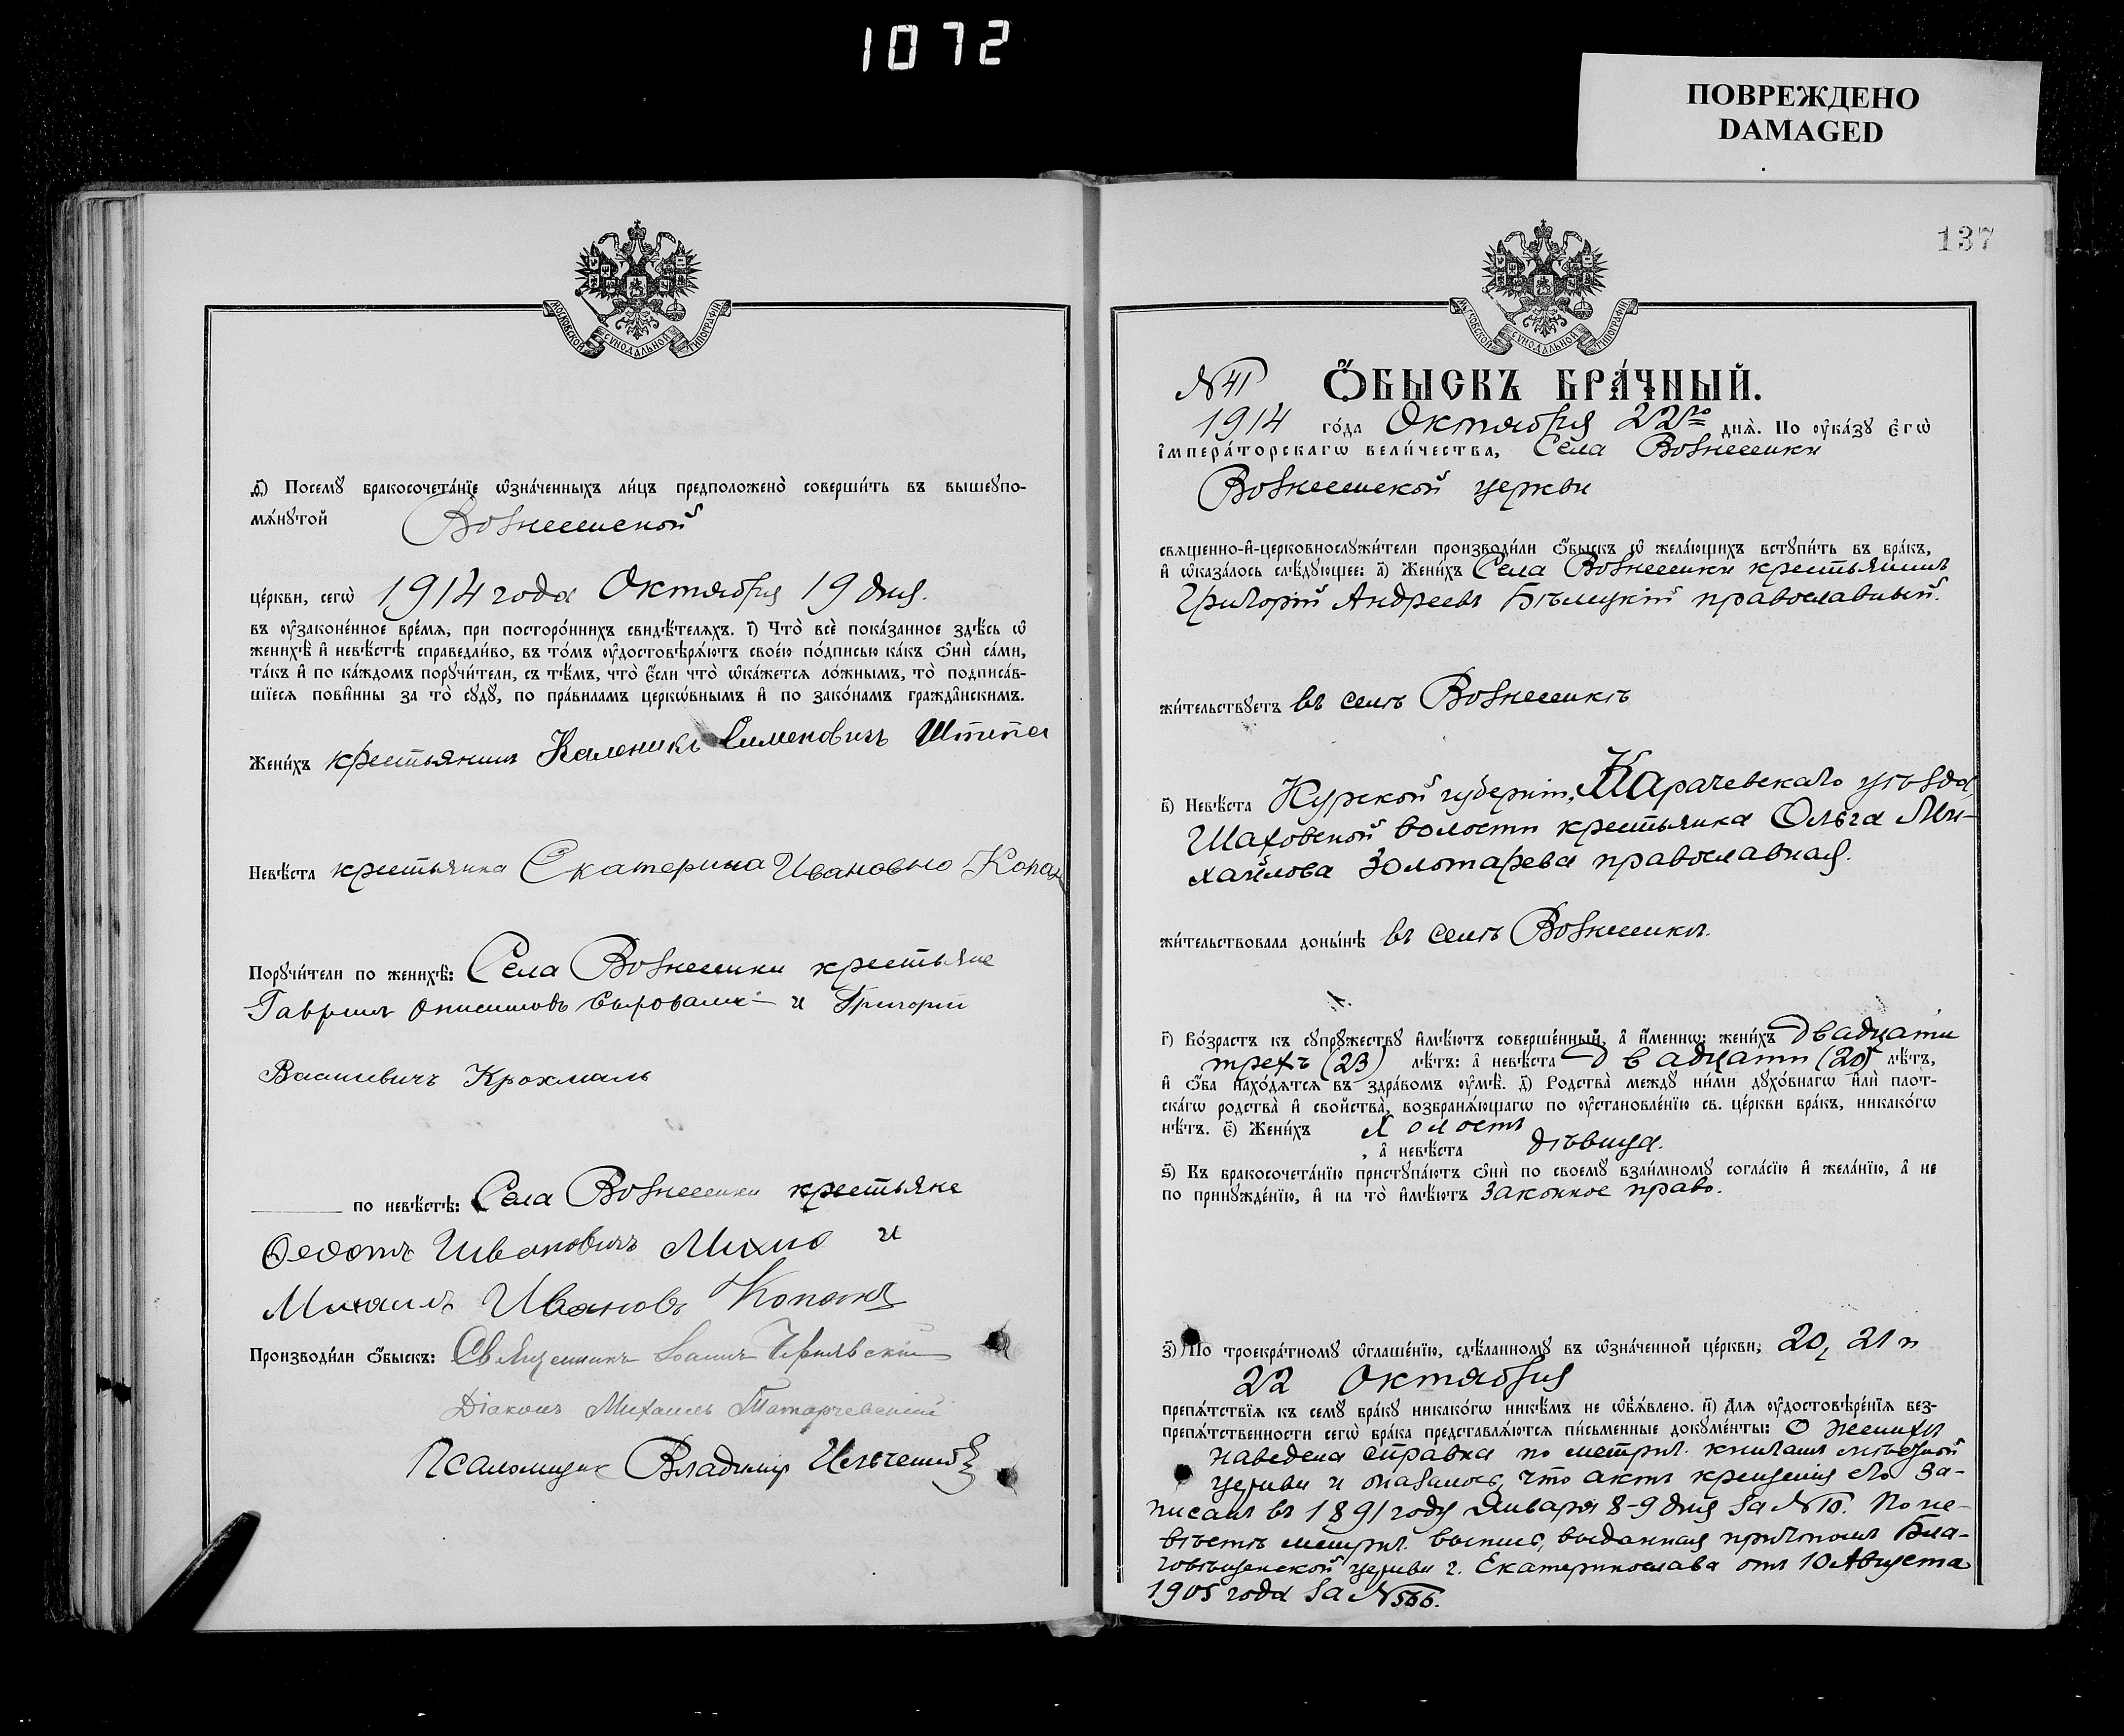 1072
ПОВРЕЖДЕНО
DAMAGED
МОСКОВСКОЙ СѴНОДАЛЬНОЙ ТИПОГРАФІИ
д҃) Посемꙋ̀ бракосочета́нїе ѡ҆зна́ченныхъ ли́цъ предположено̀ соверши́ть въ вышеꙋпо-
мѧ́нꙋтой Вознесенской
це́ркви, сегѡ̀ 1914 года Октября 19 дня.
въ ᲂу҆зако́не́нное вре́мѧ, при посторо́ннихъ свидѣ́телѧхъ. і҃) Что̀ всѐ пока́занное здѣ́сь ѡ҆
женихѣ̀ и҆ невѣ́стѣ справедли́во, въ то́мъ ᲂу҆достовѣрѧ́ютъ свое́ю по́дписью ка́къ ѻ҆нѝ са́ми,
та́къ и҆ по ка́ждомъ порꙋчи́тели, съ тѣ́мъ, что̀ є҆́сли что̀ ѡ҆ка́жетсѧ ло́жнымъ, то̀ подписа́в-
шїесѧ пови́нны за то̀ сꙋдꙋ̀, по пра́виламъ церкѡ́внымъ и҆ по зако́намъ гражда̂нскимъ.
Жени́хъ крестьянинъ Каленикъ Сименовичъ Штепа
Невѣ́ста крестьянка Екатерина Ивановно Копан
Порꙋчи́тели по женихѣ̀: Села Вознесенки крестьяне
Гавриил Онисимовъ и Григорий
Василевичъ Крохмаль
по невѣ́стѣ: Села Вознесенки крестьяне
Федотъ Ивановичъ Михно и
Михаилъ Ивановъ
Производи́ли ѻ҆́быскъ: Священникъ Іоаннъ Чернявскій
Діаконъ Михаилъ Татарчевскій
Псаломщик Владимір Ильченко
137
МОСКОВСКОЙ СѴНОДАЛЬНОЙ ТИПОГРАФІИ
N 41 Ѻ҆́БЫСКЪ БРА́ЧНЫЙ.
1914 го́да Октября 22го днѧ̀. По ᲂу҆ка́зꙋ є҆гѡ̀
і҆мпера́торскагѡ вели́чества, Села Вознесенки
Вознесенской церкви
свѧщенно-и҆-церковнослꙋжи́тели производи́ли ѻ҆́быскъ ѡ҆ жела́ющихъ встꙋпи́ть въ бра́къ,
и҆ ѡ҆каза́лось слѣ́дꙋющее: а҃) Жени́хъ Села Вознесенки крестьянинъ
Григорій Андреевъ Бѣлицкій православный.
жи́тельствꙋетъ въ селѣ Вознесенкѣ
в҃) Невѣ́ста Курской губерніи, Карачевскаго уѣзда,
Шаховской волости крестьянка Ольга Ми-
хайлова Золотарева православная.
жи́тельствовала доны́нѣ въ селѣ Вознесенкѣ.
г҃) Во́зрастъ къ сꙋпрꙋ́жествꙋ и҆мѣ́ютъ соверше́нный, а҆ и҆́меннѡ: жени́хъ двадцати
трехъ (23) лѣ́тъ: а҆ невѣ́ста двадцати (20) лѣ́тъ,
и҆ ѻ҆́ба нахо́дѧтсѧ въ здра́вомъ ᲂу҆мѣ̀. д҃) Родства̀ междꙋ ни́ми дꙋхо́внагѡ и҆лѝ пло́т-
ска́гѡ родства̀ и҆ сво́йства̀, возбранѧ́ющагѡ по ᲂу҆становле́нїю св. це́ркви бра́къ, никако́гѡ
нѣ́тъ. є҃) Жени́хъ холостъ
, а҆ невѣ́ста дѣвица.
ѕ҃) Къ бракосочета́нїю пристꙋпа́ютъ ѻ҆нѝ по своемꙋ̀ взаи́мномꙋ согла́сїю и҆ жела́нїю, а҆ не
по принꙋжде́нїю, и҆ на то̀ и҆мѣ́ютъ законное право.
з҃) По троекра́тномꙋ ѡ҆глаше́нїю, сдѣ́ланномꙋ въ ѡ҆зна́ченной це́ркви, 20, 21 и
22 Октября
препѧ́тствїѧ къ семꙋ̀ бра́кꙋ никако́гѡ никѣ́мъ не ѡ҆б̾ѧ́влено. и҃) Длѧ ᲂу҆достовѣре́нїѧ без-
препѧ́тственности сегѡ̀ бра́ка представлѧ́ютсѧ пи́сьменные докꙋме́нты: О женихѣ
наведена справка по метрич. книгамъ мѣстной
церкви и оказалось, что актъ крещенія его за-
писанъ въ 1891 году Января 8-9 дня за N 10. По не-
вѣстѣ метрич. выпись, выданная причтомъ Бла-
говѣщенской церкви г. Екатеринослава отъ 10 Августа
1905 года за N 566.